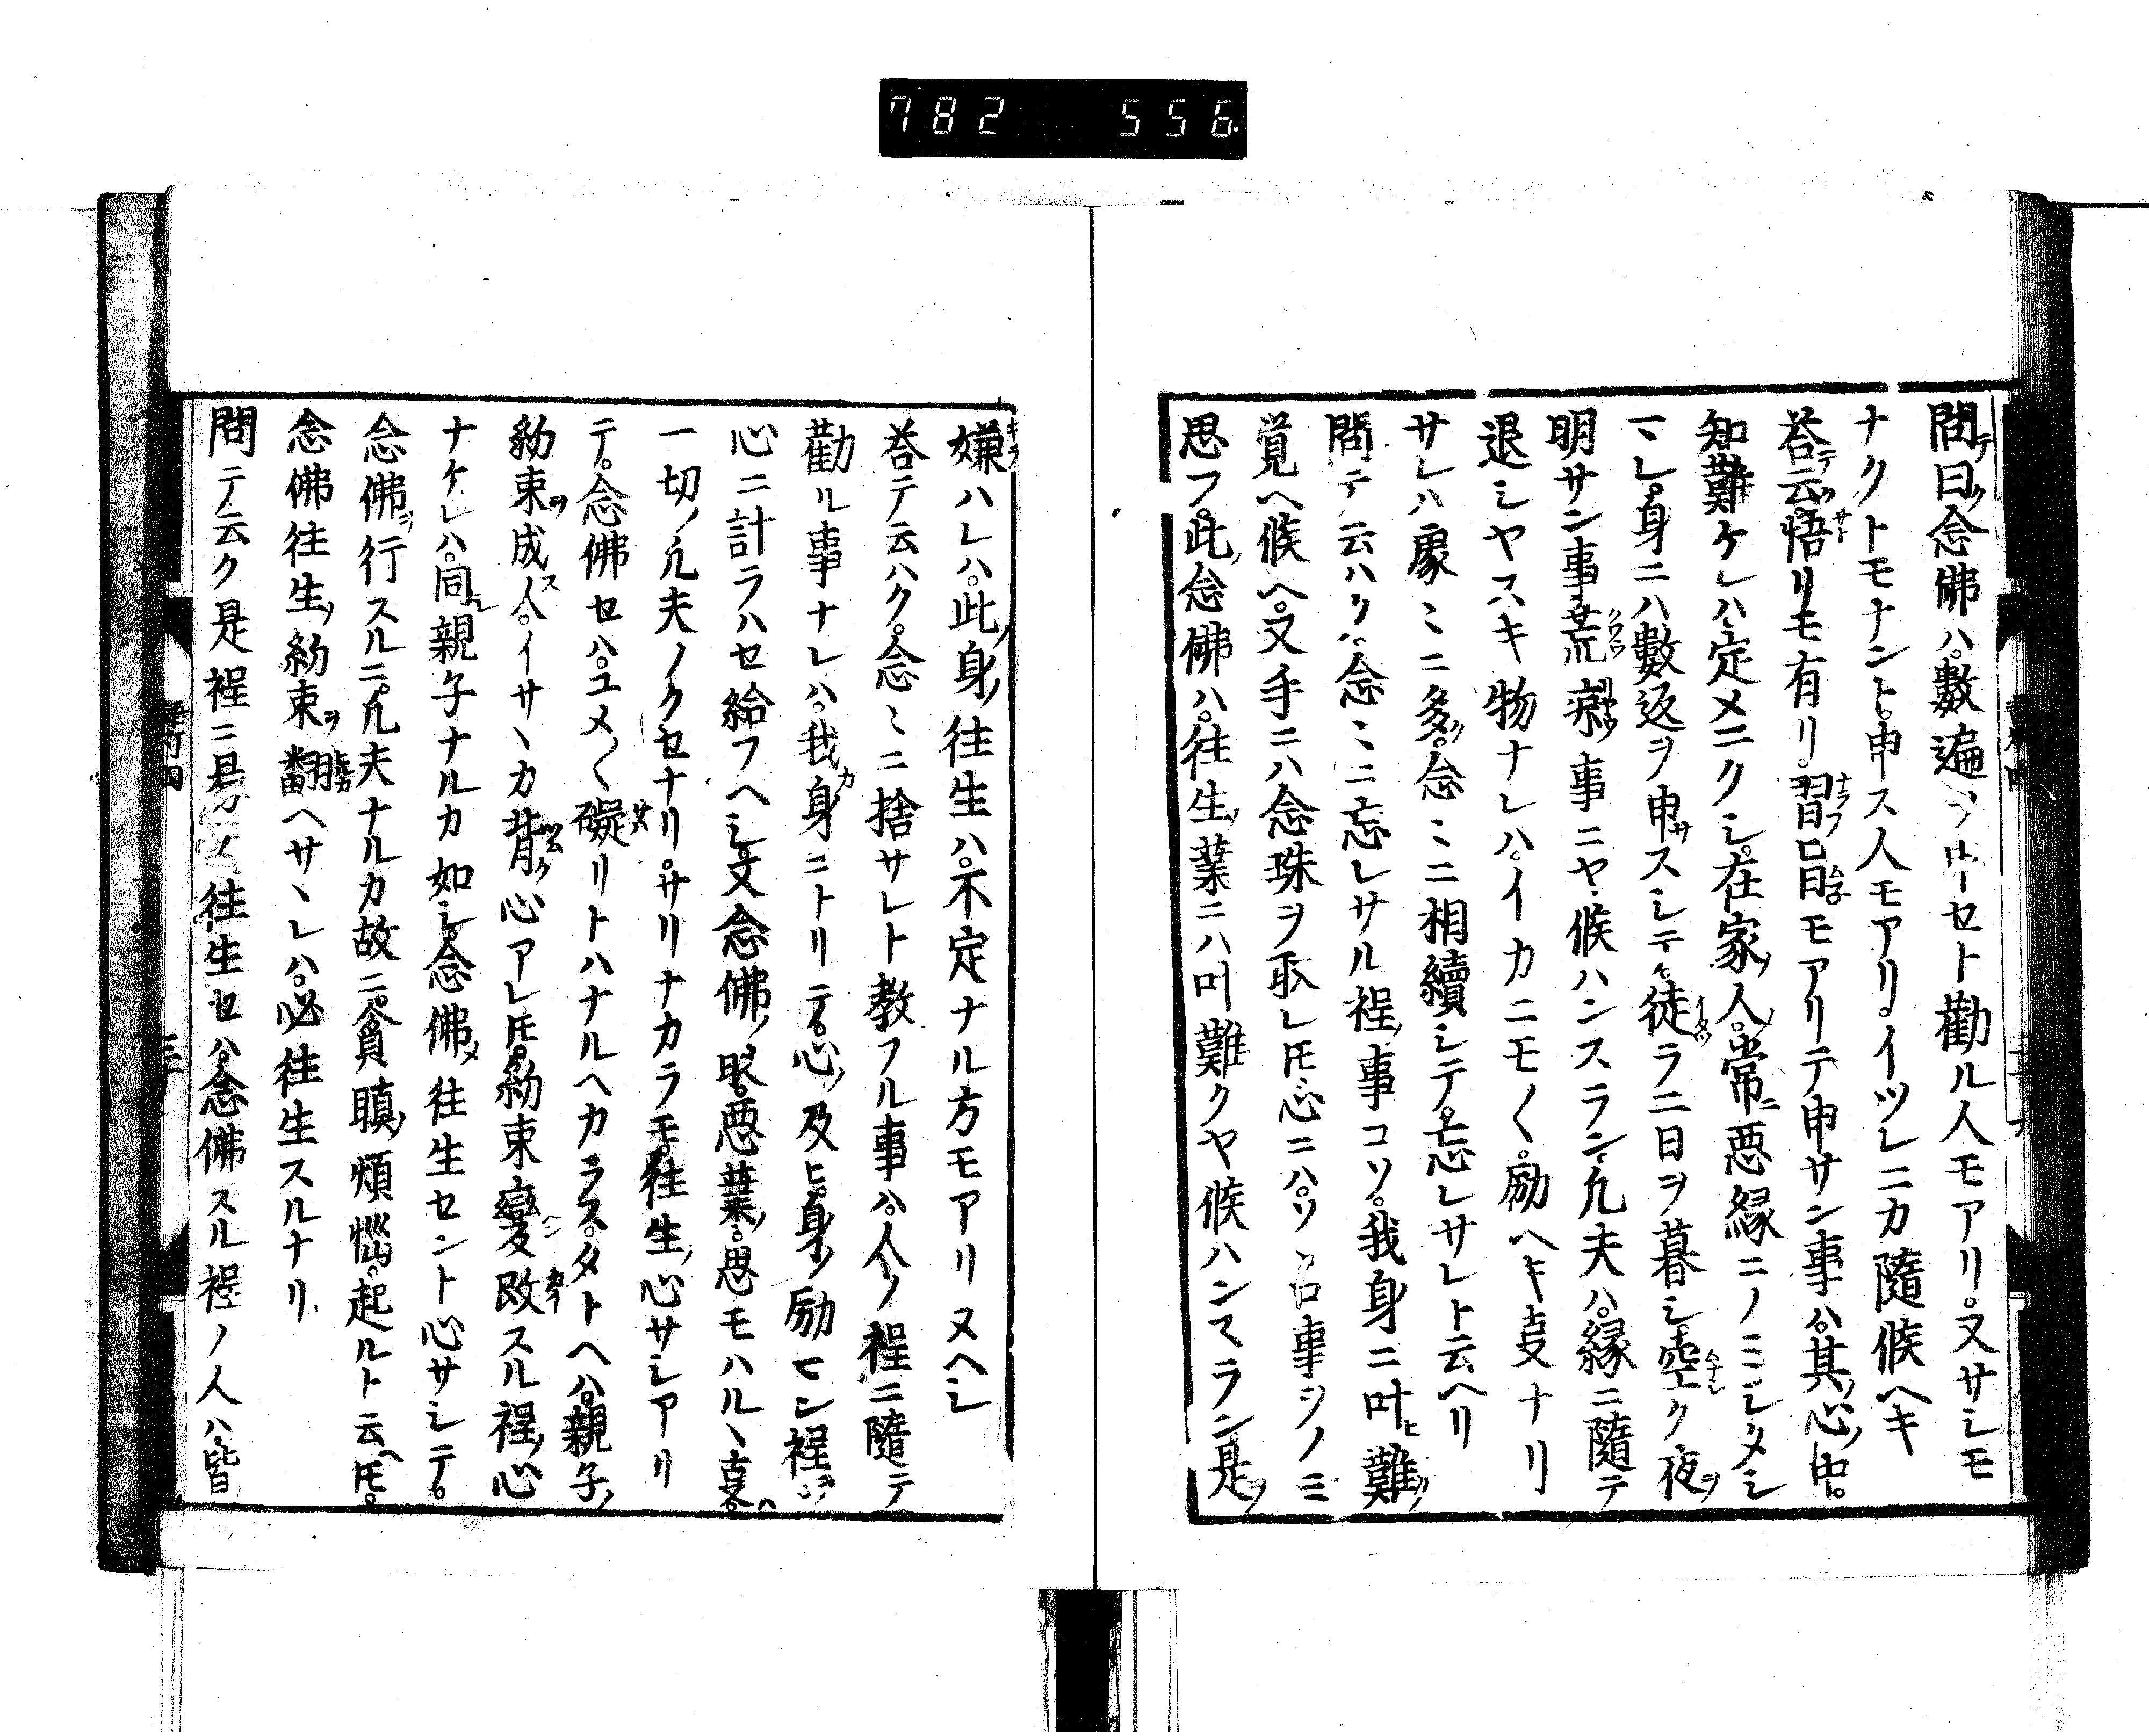 782 556
問テ曰ク念佛ハ。數遍ヲ申セト勸ル人モアリ。又サシモ
ナクトモナント。申ス人モアリ。イツレニカ隨候ヘキ
荅テ云ク。悟リモ有リ。習フ旨モアリテ申サン事ハ。其ノ心ノ中。
知難ケレハ。定メニクシ。在家ノ人。常ニ惡縁ニノミシタシ
マレ。身ニハ數返ヲ申サスシテ。徒ラニ日ヲ暮シ。空ク夜ヲ
明サン事荒涼ノ事ニヤ候ハンスラン。凢夫ハ。縁ニ隨テ
退シヤスキ物ナレハ。イカニモ〱。勵ヘキ叓ナリ
サレハ處ミニ多ク。念ミニ相續シテ。忘レサレト云ヘリ
問テ云ハク。念ミニ忘レサル程ノ事コソ。我身ニ叶ヒ難ク
覺ヘ候ヘ。又手ニハ念珠ヲ取レ𪜈。心ニハ。ソヽロ事ヲノミ
思フ。此ノ念佛ハ。往生ノ業ニハ叶難クヤ候ハンスラン。是ヲ
嫌ハレハ。此ノ身ノ往生ハ。不定ナル方モアリヌヘシ
荅テ云ハク。念ミニ捨サレト教フル事ハ。人ノ程ニ隨テ
勸ル事ナレハ。我カ身ニトリテ。心ノ及ヒ。身ノ勵マン程ハ。
心ニ計ラハセ給フヘシ。又念佛ノ時。惡業ノ。思モハルヽ叓ハ。
一切ノ凢夫ノクセナリ。サリナカラモ。往生ノ心サシアリ
テ。念佛セハ。ユメ〱礙リトハナルヘカラス。タトヘハ。親子ノ
約束ヲ成ス人。イサヽカ背ク心アレ𪜈。約束變改スル程ノ心
ナケレハ。同シ親子ナルカ如シ。念佛メ往生セント心サシテ。
念佛ヲ行スルニ。凢夫ナルカ故ニ。貪瞋ノ煩惱。起ルト云ヘ𪜈。
念佛往生ノ約束ヲ翻ヘサヽレハ。必往生スルナリ
問テ云ク是程ニ往生セハ。念佛スル程ノ人ハ。皆